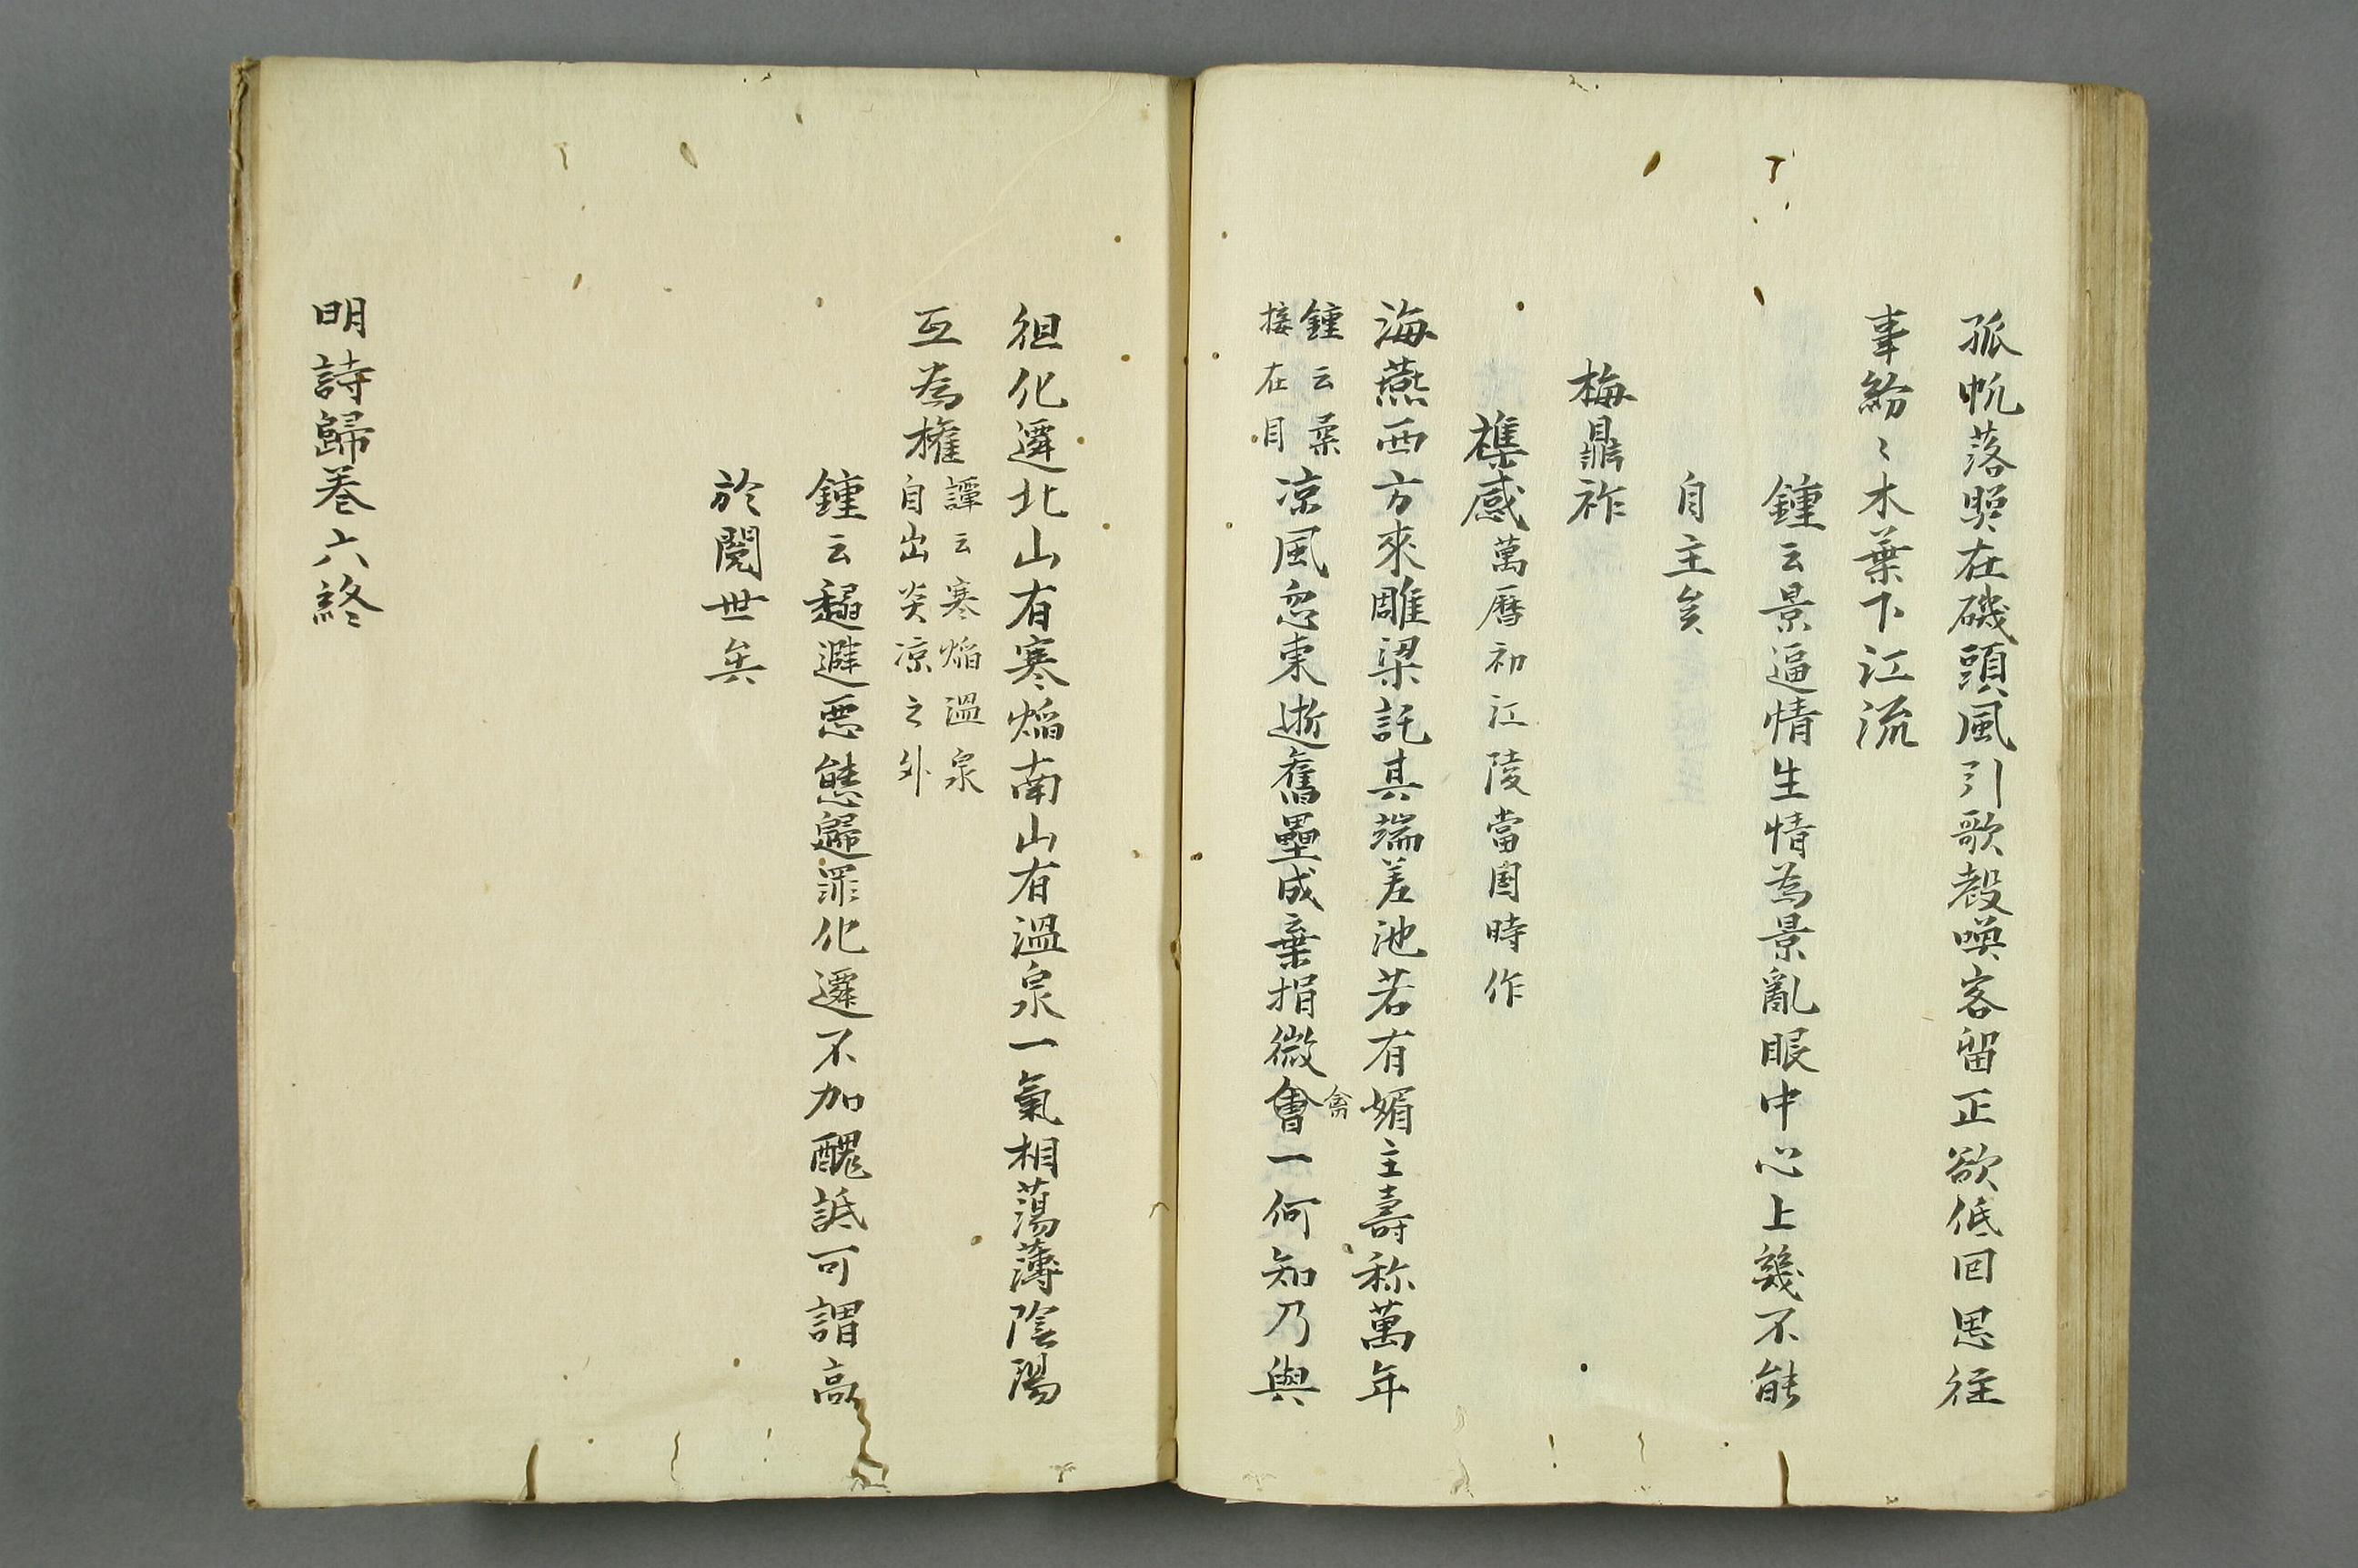 孤帆落照在磯頭風引歌聲喚客留正欲低回思往
事紛〻木葉下江流
鍾云景逼情生情為景亂眼中心上幾不能
自主矣
梅鼎祚
襍感萬曆初江陵當國時作
海燕西方來雕梁託其端差池若有媚主壽称萬年
鍾云桑
接在目
凉風忽東逝舊壘成棄捐微會一何知乃與
禽
徂化遷北山有寒焰南山有溫泉一氣相蕩薄陰陽
互為權
譚云寒焰溫泉
自出炎凉之外
鍾云趨避惡態歸罪化遷不加醜詆可謂高
於閱世矣
明詩歸卷六終